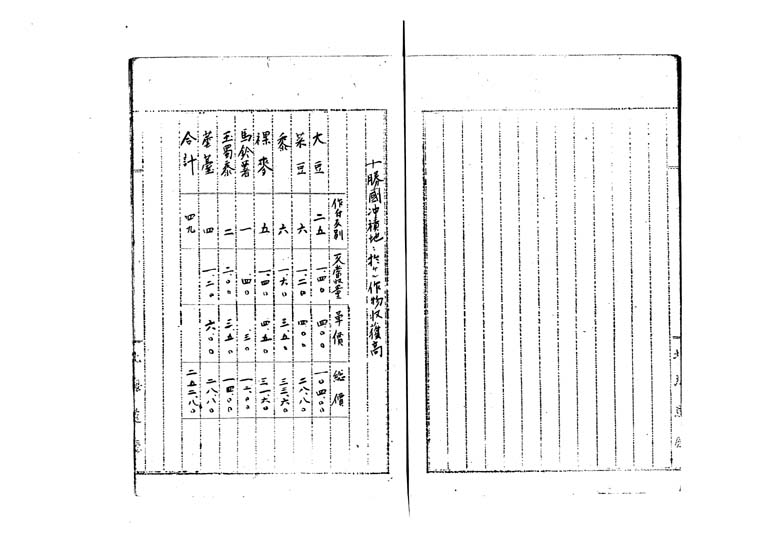 十勝國沖積地ニ於ケル作物收獲高
作付反別 反當収量 單價 総價
大豆 二五 一.四〇 四.〇〇 一〇四.〇〇
菜豆 六 一.二〇 四.〇〇 二八.八〇
黍 六 一.六〇 三.五〇 三三.六〇
裸麥 五 一.四〇 四.五〇 三一.六〇
馬鈴薯 一 .四〇 .三〇
玉蜀黍 二 二.〇〇 三.五〇 一四.〇〇
蕓薹 四 一.二〇 六.〇〇 二八.八〇
合計 四九 二五二.八〇